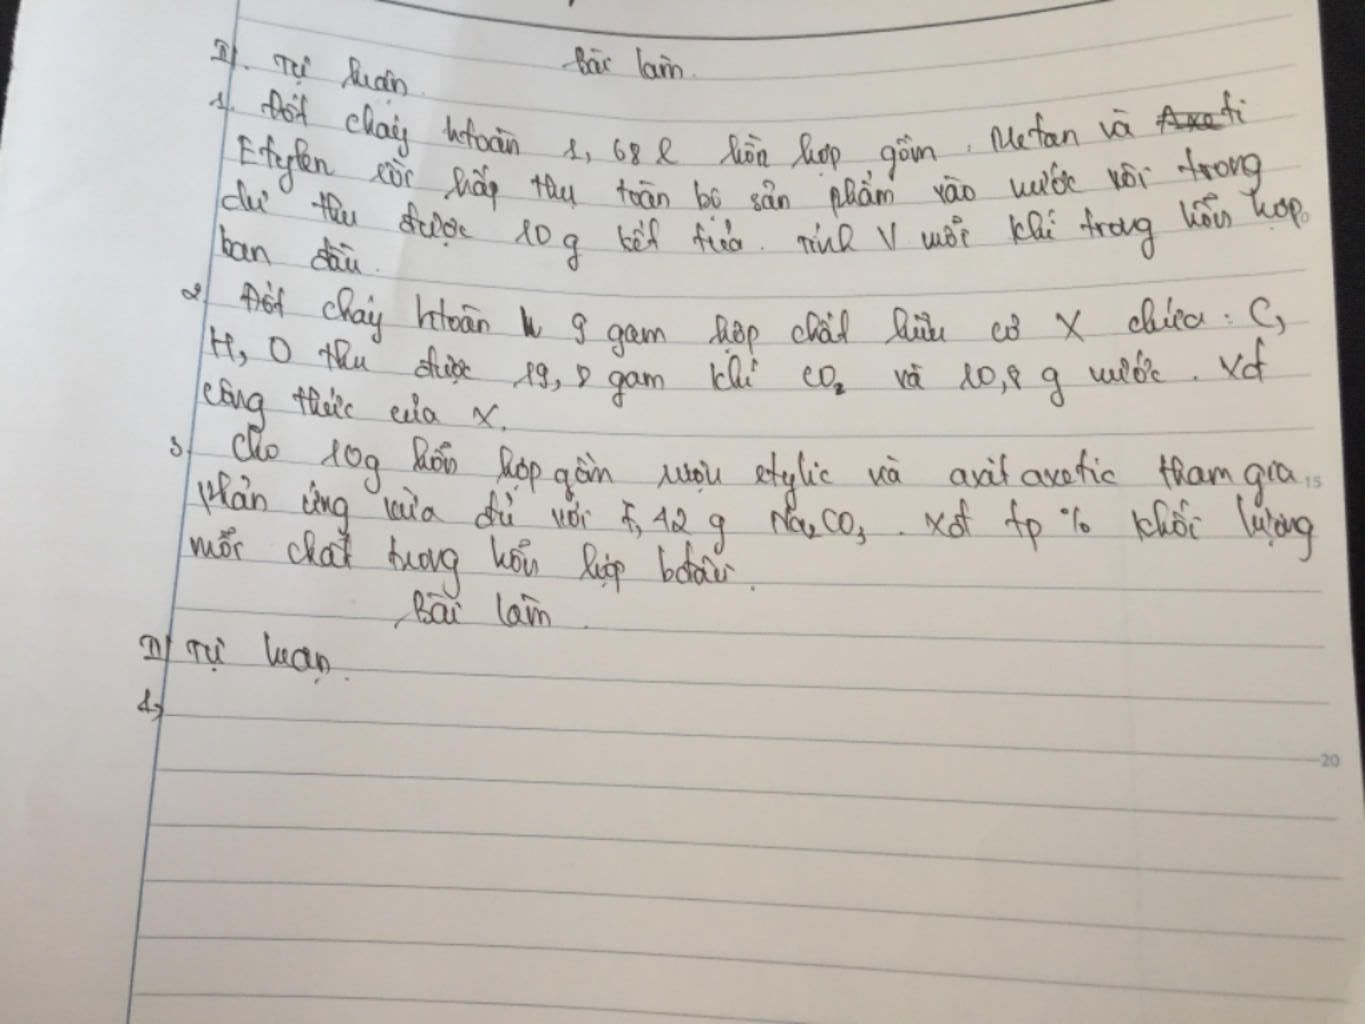 Bài làm.
II. Tự luận
1. Đốt cháy htoàn 1,68 l hỗn hợp gồm. Metan và Axeti
Etylen rồi hấp thụ toàn bộ sản phẩm vào nước vôi trong
dư thu được 10 g kết tủa. Tính V mỗi khí trong hỗn hợp.
ban đầu.
2. Đốt cháy htoàn 9 gam hợp chất hữu cơ X chứa: C,
H, O thu được 19,8 gam khí CO2 và 10,8 g nước. Xđ
công thức của X.
3. Cho 10g hỗn hợp gồm rượu etylic và axit axetic tham gia 15
phản ứng vừa đủ với 7,42 g Na2CO3. Xđ tp % khối lượng
mỗi chất trong hỗn hợp bđầu.
Bài làm.
II/ Tự luận.
1,
20